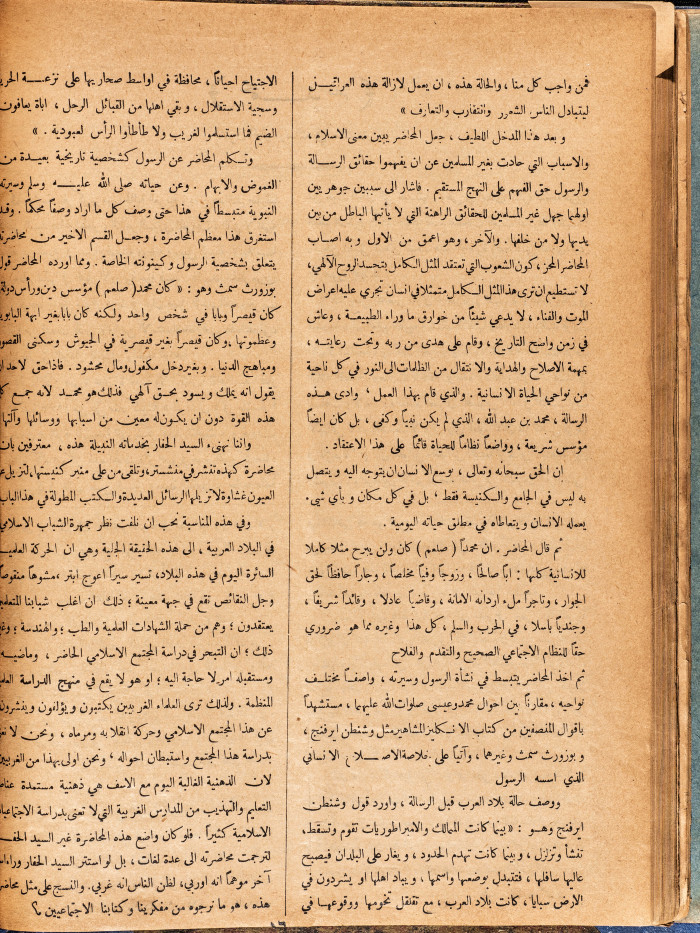 فمن واجب كل منا، والحالة هذه، ان يعمل لازالة هذه العراقيـل
ليتبادل الناس الشعور والتقارب والتعارف »
و بعد هذا المدخل اللطيف، جعل المحاضر يبين معنى الاسلام،
والاسباب التي حادت بغير المسلمين عن ان يفهموا حقائق الرسـالة
والرسول حق الفهم على النهج المستقيم . فاشار الى سببين جوهريين
اولهما جهل غير المسلمين للحقائق الراهنة التي لا يأتيها الباطل من بين
يديها ولا من خلفها . والآخر، وهو اعمق من الاول وبه اصـاب
المحاضر المحز، كون الشعوب التي تعتقد المثل الكامل بتجسد الروح الآلهي،
لا تستطيع ان ترى هذا المثل الـكامل متمثلا في انسان تجري عليه اعراض
الموت والفناء، لا يدعي شيئاً من خوارق ما وراء الطبيعـة، وعاش
في زمن واضح التاريخ، وقام على هدى من ربه وتحت رعايتـه،
بمهمة الاصلاح والهداية والانتقال من الظلمات الى النور في كل ناحية
من نواحي الحياة الانسانية . والذي قام بهذا العمل ، وادى هـذه
الرسالة، محمد بن عبد الله، الذي لم يكن نبياً وكفى، بل كان ايضاً
مؤسس شريعة، وواضعاً نظاماً للحياة قائماً على هذا الاعتقاد .
ان الحق سبحانه وتعالى، بوسع الانسان ان يتوجه اليه ويتصل
به ليس في الجامع والـكنيسة فقط ، بل في كل مكان و بأي شيء
يعمله الانسان و يتعاطاه في مطلق حياته اليومية .
ثم قال المحاضر . ان محمداً ( صلعم ) كان ولن يبرح مثلا كاملا
للانسانية كلها : اباً صالحاً، وزوجاً وفياً مخلصاً، وجاراً حافظاً لحق
الجوار، وتاجراً ملء اردانه الامانة، وقاضياً عادلا، وقائداً شريفاً،
وجندياً باسلا، في الحرب والسلم، كل هذا وغيره مما هو ضروري
حقاً للنظام الاجتماعي الصحيح والتقدم والفلاح
ثم اخذ المحاضر يتبسط في نشأة الرسول وسيرته، واصفـاً مختلـف
نواحيه، مقارناً بين احوال محمد وعيسى صلوات الله عليهما، مستشهداً
باقوال المنصفين من كتاب الانـكليز المشاهير مثل وشنطن ارفنج،
و بوزورث سمث وغيرهما، وآتياً على خلاصة الاصـلاح الانساني
الذي اسسه الرسول
ووصف حالة بلاد العرب قبل الرسالة، واورد قول وشنطن
ارفنج وهـو : « بينما كانت الممالك والامبراطوريات تقوم وتسقط،
تنشأ وتزلزل، وبينما كانت تهدم الحدود، ويغار على البلدان فيصبح
عاليها سافلها، فتتبدل بوضعها واسمها، ويباد اهلها او يشردون في
الارض سبايا، كانت بلاد العرب، مع تقلقل تخومها ووقوعها في
الاجتياح احياناً، محافظة في اواسط صحاريها على نزعـة
وسجية الاستقلال، وبقي اهلها من القبائل الرحل، اباة يعافون
الضيم فما استسلموا لغريب ولا طأطأوا الرأس لعبودية . »
وتـكلم المحاضر عن الرسول كشخصية تاريخية بعيـدة من
الغموض والابهام . وعن حياته صلى الله عليـه وسلم وسيرته
النبوية متبسطاً في هذا حتى وصف كل ما اراد وصفاً محكماً . وقـد
استغرق هذا معظم المحاضرة، وجعـل القسم الاخير من محاضرته
يتعلق بشخصية الرسول وكينونته الخاصة . ومما اورده المحاضر قول
بوزورث سمث وهو : « كان محمد ( صلعم ) مؤسس دين ورأس دولة
كان قيصراً وبابا في شخص واحد ولـكنه كان بابا بغير ابهة
وعظموتها، وكان قيصراً بغير قيصرية في الجيوش وسكنى القصور
ومباهج الدنيا . وبغير دخل مكفول ومال محشود . فاذا حق لاحد ان
يقول انه يملك ويسود بحـق آلهي فذلك هو محمد لانه جمـع
هذه القوة دون ان يكون له معين من اسبابها ووسائلها وآلتها
واننا نهنيء السيد الحفار بخدماته النبيلة هذه، معترفين بان
محاضرة كهذه تنشر في منشستر، وتلقى من على منبر كنيستها، لتزيل
العيون غشاوة لا تزيلها الرسائل العديدة والـكتب المطولة في هذا الباب
وفي هذه المناسبة نحب ان نلفت نظر جمهرة الشباب الاسلامي
في البلاد العربية، الى هذه الحقيقة الجلية وهي ان الحركة العلمية
السائرة اليوم في هذه البلاد، تسير سيراً اعوج ابتر، مشوهاً منقوصاً
وجل النقائص تقع في جهة معينة ؛ ذلك ان اغلب شبابنا المتعلمين
يعتقدون ؛ وهم من حملة الشهادات العلمية والطب ؛ والهندسة ؛
ذلك ؛ ان التبحر في دراسة المجتمع الاسلامي الحاضر، وماضيـه
ومستقبله امر لا حاجة اليه ؛ او هو لا يقع في منهج الدراسة
المنظمة . ولذلك ترى العلماء الغربيين يكتبون ويؤلفون وينشرون
عن هذا المجتمع الاسلامي وحركة انقلابه ومرماه، ونحن لا
بدراسة هذا المجتمع واستبطان احواله ، ونحن اولى بهذا من الغربيين
لان الذهنية الغالبة اليوم مع الاسف هي ذهنية مستمدة
التعليم والتهذيب من المدارس الغربية التي لا تعنى بدراسة
الاسلامية كثيراً . فلو كان واضع هذه المحاضرة غير السيد
لترجمت محاضرته الى عدة لغات، بل لو استتر السيد الحفار
آخر موهماً انه اوربي، لظن الناس انه غربي . والنسج على مثل
هذه، هو ما نرجوه من مفكرينا وكتابنا الاجتماعيين